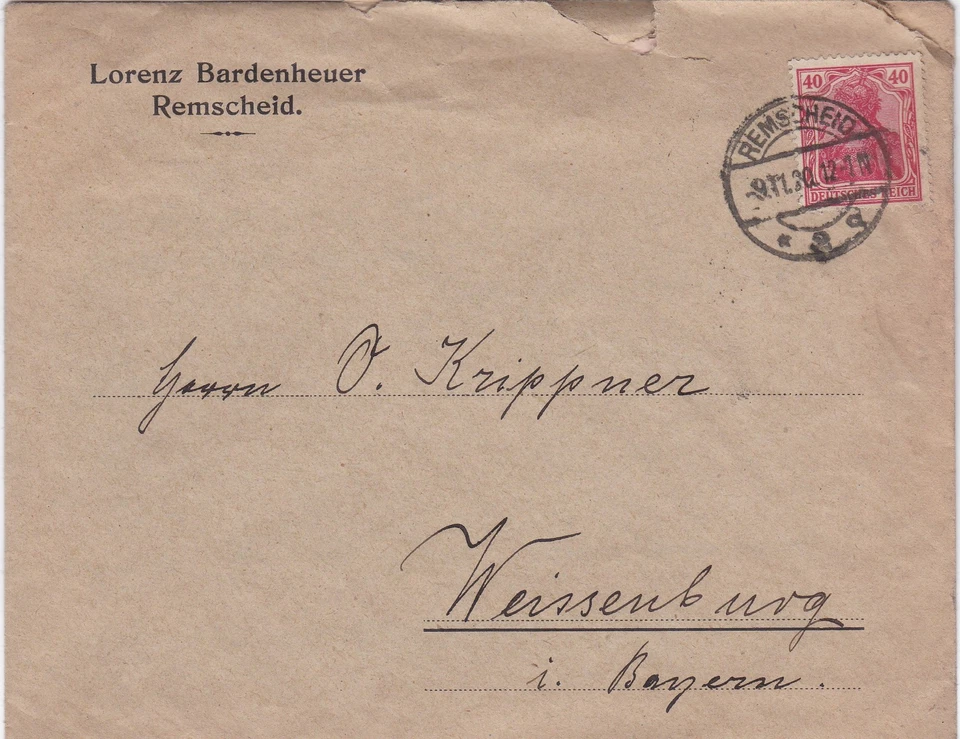 Lorenz Bardenheuer
Remscheid.
40 40
DEUTSCHES REICH
REMSCHEID
12-1 N
Herrn O. Krippner
Weissenburg
i. Bayern.